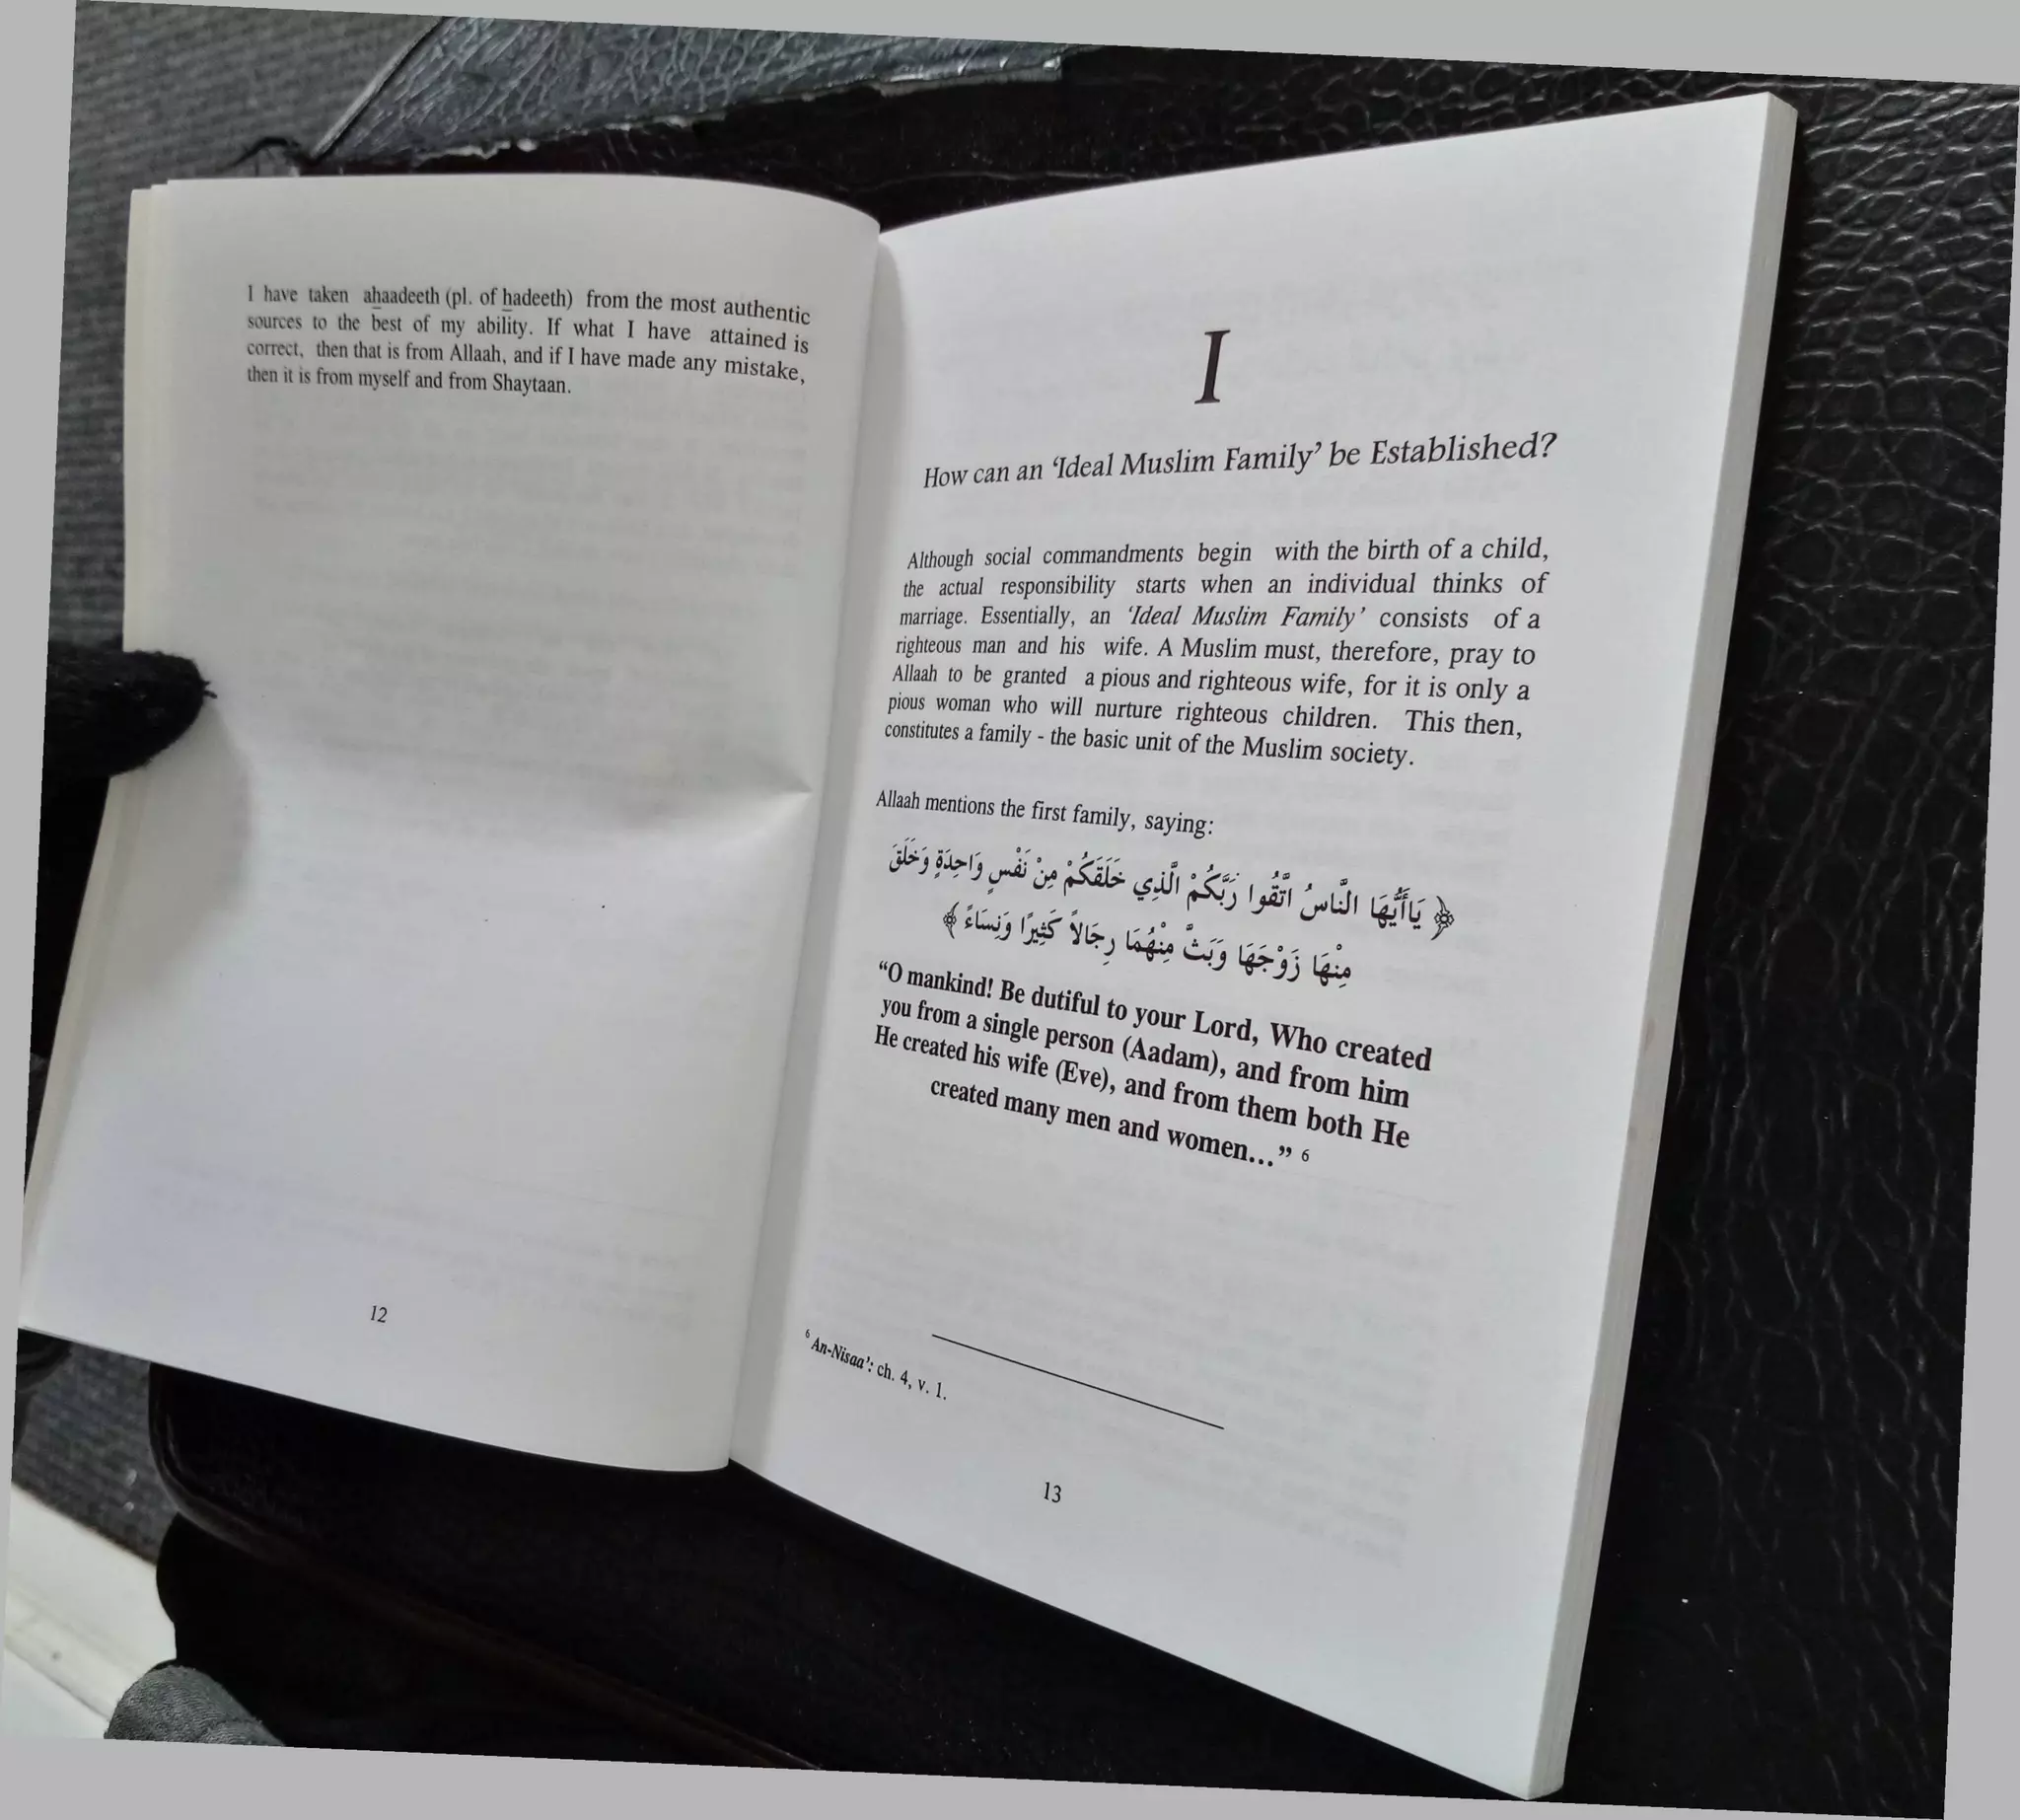 I have taken ahaadeeth (pl. of hadeeth) from the most authentic
sources to the best of my ability. If what I have attained is
correct, then that is from Allaah, and if I have made any mistake,
then it is from myself and from Shaytaan.
12
I
How can an ‘Ideal Muslim Family’ be Established?
Although social commandments begin with the birth of a child,
the actual responsibility starts when an individual thinks of
marriage. Essentially, an ‘Ideal Muslim Family’ consists of a
righteous man and his wife. A Muslim must, therefore, pray to
Allaah to be granted a pious and righteous wife, for it is only a
pious woman who will nurture righteous children. This then,
constitutes a family - the basic unit of the Muslim society.
Allaah mentions the first family, saying:
﴿ يَاأَيُّهَا النَّاسُ اتَّقُوا رَبَّكُمْ الَّذِي خَلَقَكُمْ مِنْ نَفْسٍ وَاحِدَةٍ وَخَلَقَ
مِنْهَا زَوْجَهَا وَبَثَّ مِنْهُمَا رِجَالاً كَثِيرًا وَنِسَاءً ﴾
“O mankind! Be dutiful to your Lord, Who created
you from a single person (Aadam), and from him
He created his wife (Eve), and from them both He
created many men and women...” 6
6 An-Nisaa’: ch. 4, v. 1.
13